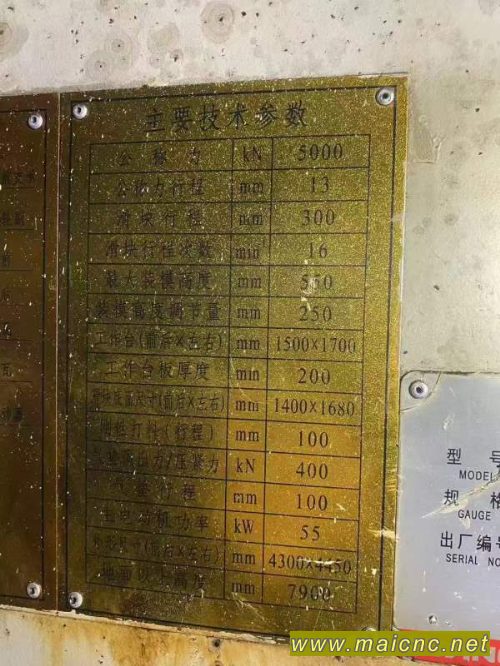 主要技术参数
公称力 kN 5000
公称力行程 mm 13
滑块行程 mm 300
滑块行程次数 min 16
最大装模高度 mm 550
装模高度调节量 mm 250
工作台(前后×左右) mm 1500×1700
工作台板厚度 min 200
滑块底面尺寸(前后×左右) mm 1400×1680
打料(行程) mm 100
气垫压出力/压紧力 kN 400
气垫行程 mm 100
主电动机功率 kW 55
外形尺寸(前后×左右) mm 4300×4450
地面以上高度 mm 7900
型 号
MODEL
规 格
GAUGE
出厂编号
SERIAL NO
www.maicnc.net